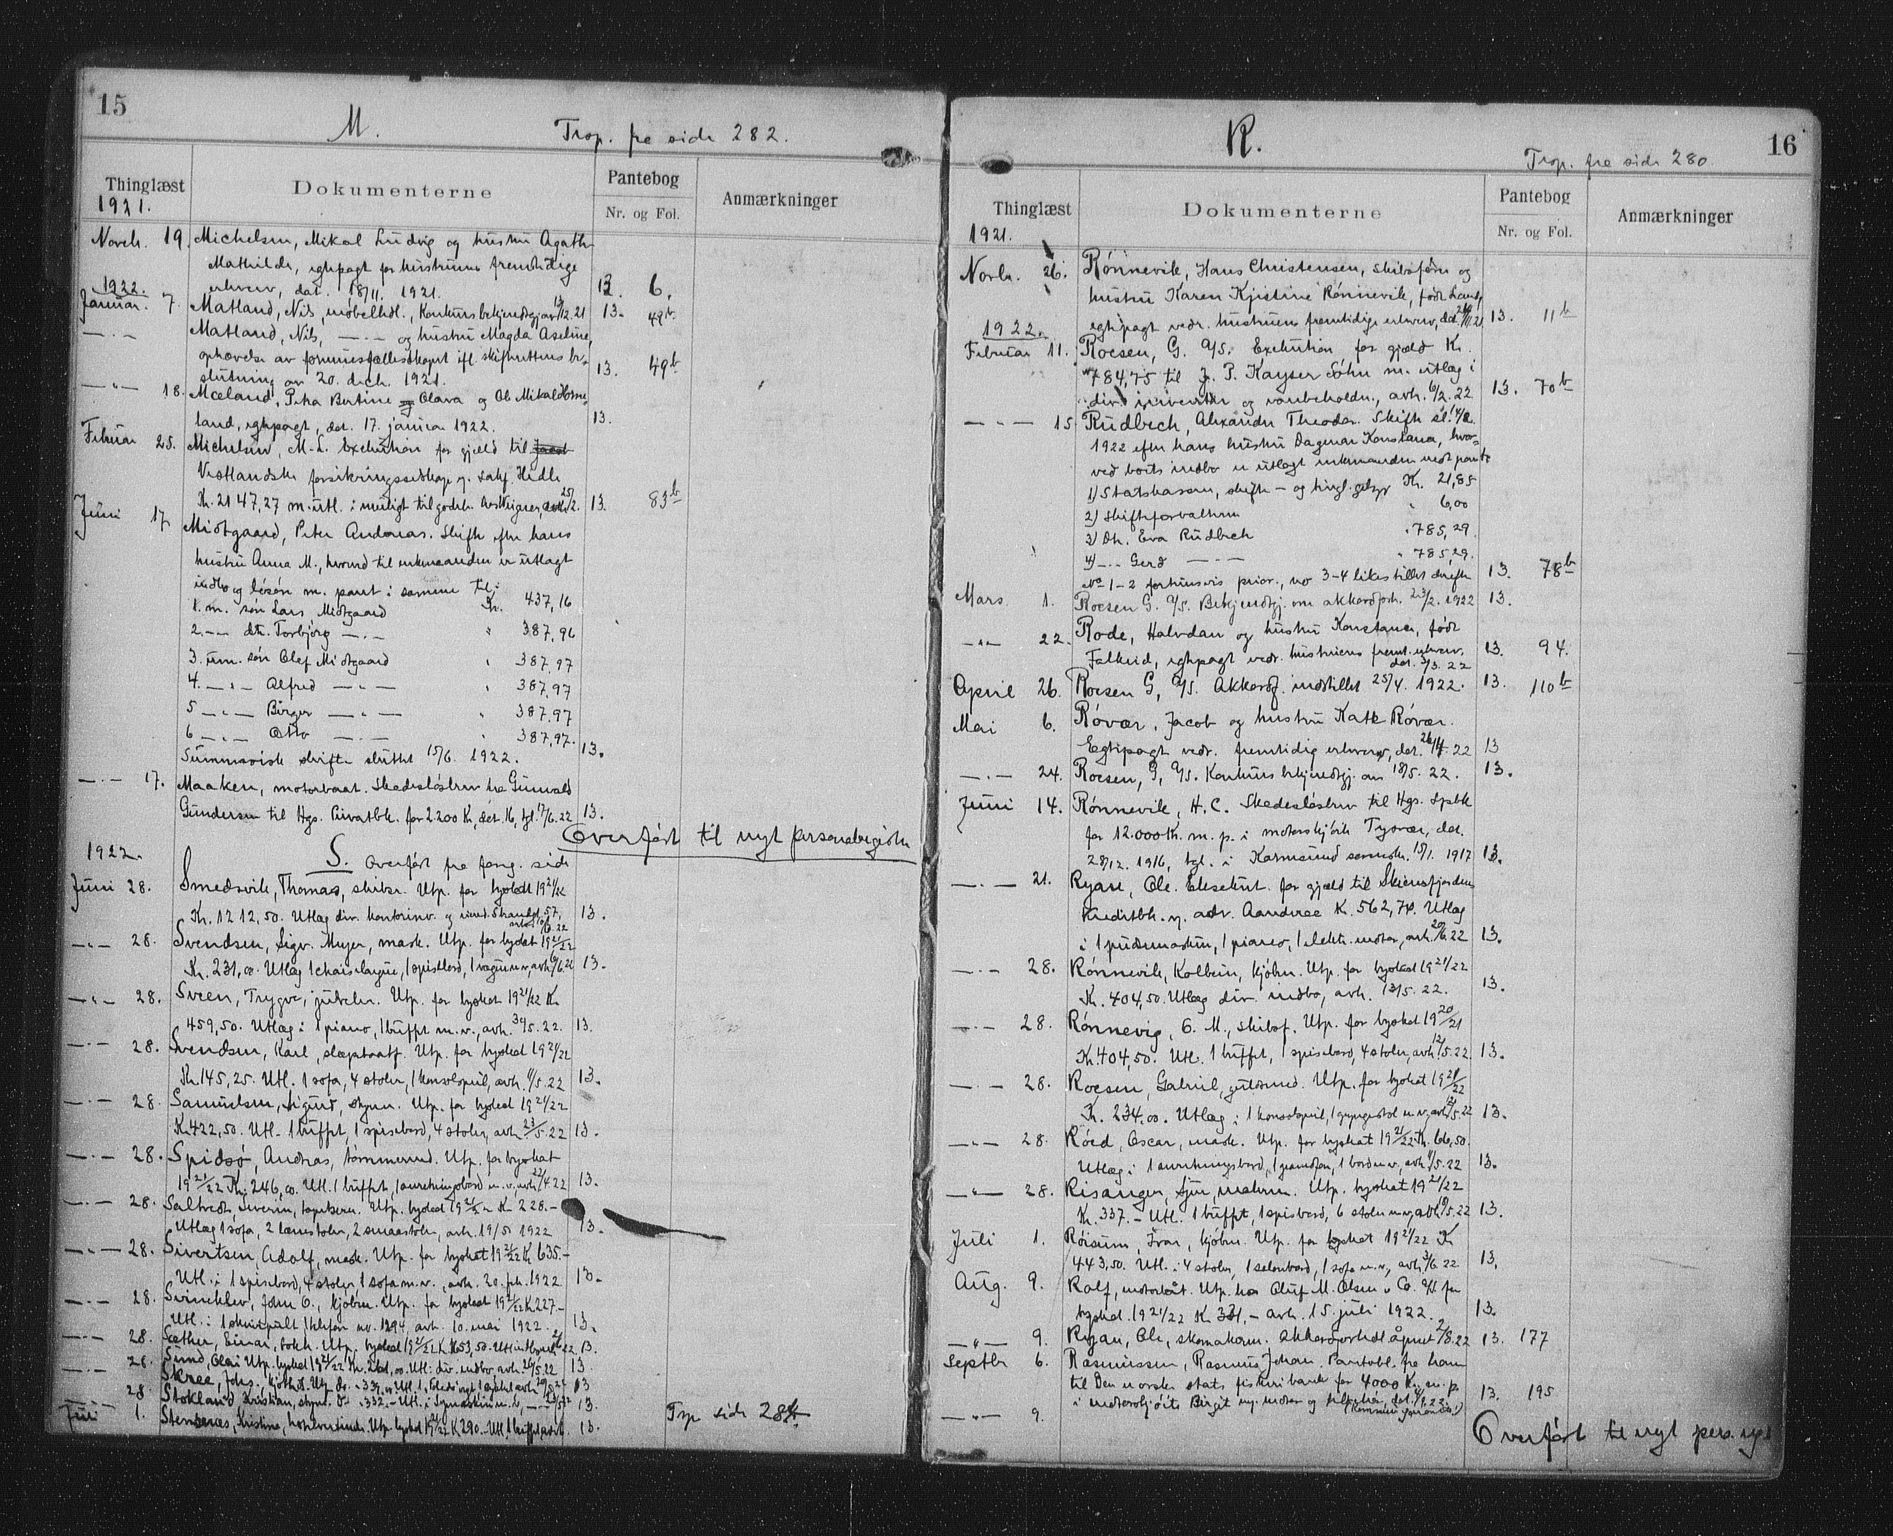 15
M.
Trsp. fra side 282.
Thinglæst
Dokumenterne
Pantebog
Nr. og Fol.
Anmærkninger
1921.
Novch. 19. Michelsen, Mikal Ludvig og hustru Agathe
Mathilde, egtepagt for hustruens fremtidige
erhverv, dat. 18/11. 1921. 12. 6.
1922.
Januar 7. Matland, Nils, møbelhdl., Konkursbekjendtgj. av 12.21 13. 49b
—"— Matland, Nils, —"— og hustru Magda Aseline,
ophævelse av formuesfællesskapet ifl. skifterettens be-
slutning av 20. decb. 1921. 13. 49b
—"— 18. Mæland, Petra Bertine og Olava og Ole Mikal
land, egtepagt, dat. 17. januar 1922. 13.
Februar 25. Michelsen, M. L. Exekution for gjæld til
Vestlandske forsikringsselskap v. sakf. Hidle
Kr. 2147,27 m. utl. i muligt tilgodeh. 25/2. 13. 83b
Juni 17. Midtgaard, Peter Andreas. Skifte efter hans
hustru Anna M., hvorved til enkemanden er utlagt
indbo og løsøre m. pant i samme til:
1. m. søn Lars Midtgaard Kr. 437,16
2. —"— dtr. Torbjørg —"— " 387,96
3. um. søn Olaf Midtgaard " 387,97
4. —"— Alfred —"— " 387,97
5 —"— Birger —"— " 387,97
6 —"— Otto —"— " 387,97.
Summarisk skifte sluttet 15/6. 1922. 13.
—"— 17. Maaken, motorbaat. Skadesløsbrev fra Gunvald
Gundersen til Hgs. Privatbk. for 2200 Kr, dat. 16, tgl. 17/6.22 13.
Overført til nyt personalregister
1922.
S. Overført fra foreg. side
Juni 28. Smedsvik, Thomas, skibsr. Utp. for byskat 1921/22
Kr. 1212,50. Utlæg div. kontorinv. 13.
—"— 28. Svendsen, Sigv. Meyer, mask. Utp. for byskat 1921/22
Kr. 231,00. Utlæg 1 chaiselongue, 1 spisebord, 13.
—"— 28. Sveen, Trygve, juveler. Utp. for byskat 1921/22 Kr
459,50. Utlæg i 1 piano, 1 buffet m. v., avh. 30/5. 22. 13.
—"— 28. Svendsen, Karl, Utp. for byskat 1921/22
Kr. 145,25. Utl. 1 sofa, 4 stoler, 1 konsolspeil, avh. 11/5.22 13.
—"— 28. Samuelsen, Sigurd, Utp. for byskat 1921/22
Kr. 422,50. Utl. 1 buffet, 1 spisebord, 4 stoler, avh. 23/5.22 13.
—"— 28. Spidsø, Andreas, tømmermd. Utp. for byskat
1921/22 Kr. 246,00. Utl. 1 buffet, 1 anretningsbord m. v., avh. 4.22 13.
—"— 28. Severin, Utp. byskat 1921/22 Kr 228.—
Utlæg 1 sofa, 2 lænestoler, 2 smaastoler, avh. 19/5 1922 13.
—"— 28. Sivertsen, Adolf, mask. Utp. for byskat 1921/22 K 635.—
Utl. i 1 spisebord, 4 stoler, 1 sofa m. v., avh. 20. feb. 1922 13.
—"— 28. John O., kjøbm. Utp. for byskat 1921/22 K 227.—
Utl. i 1 skrivepult, 1 telefon no. 1294, avh. 10. mai 1922. 13.
—"— 28. Sæther, Einar, bokh. Utp. byskat 1921/22 K 653,50. 13.
—"— 28. Sund, Olai Utp. byskat 1921/22 Utl. div. indbo, avh. 5.22 13.
Skree, Johs. 13
28 Stokland Kristian, 332.— Utl. 1 symaskin 13.
Juli 1. Stensnes, Kristine, Utp. byskat 1921/22 K 290.— Utl. 1 buffet 13.
Trsp side 284
R.
Trsp. fra side 280.
16
Thinglæst
Dokumenterne
Pantebog
Nr. og Fol.
Anmærkninger
1921.
Novbr. 26. Rønnevik, Hans Christensen, skibsfører og
hustru Karen Kjistine Rønnevik, født
egtepagt vedr. hustruens fremtidige erhverv, dat. 13. 11b
1922.
Februar 11. Rocsen, G. A/S. Exekution for gjæld Kr.
784,75 til J. P. Kayser Søhn m. utlæg i
div. inventar og varebeholdn., avh. 6/2. 22 13. 70b
—"— 15 Rudbech, Alexander Theodor. Skifte sl. 14/2.
1922 efter hans hustru Dagmar Konstance, hvor-
ved boets indbo er utlagt enkemanden mot pant
1) Statskassen, skifte- og tingl.gebyr Kr. 21,85
2) Skifteforvalteren " 6,00
3) Dtr. Eva Rudbech " 785,29.
4) —"— Gerd —"— " 785,29.
No 1-2 forhaandsvis prior., no 3-4 likestillet derefter 13. 78b
Mars 1. Rocsen G. A/S. Bekjendtgj. om akkordforh. 23/2. 1922 13.
—"— 22. Rode, Halvdan og hustru Konstance, født
Falkeid, egtepagt vedr. hustruens fremt. erhverv,
dat. 3/3. 22 13. 94.
April 26. Rocsen G, A/S. Akkordf. indstillet 25/4. 1922. 13. 110b
Mai 6. Røvær, Jacob og hustru Kate Røvær.
Egtepagt vedr. fremtidig erhverv, dat. 26/4. 22 13
—"— 24. Rocsen, G, A/S. Konkurs bekjendtgj. av 18/5. 22. 13.
Juni 14. Rønnevik, H. C. Skadesløsbrev til Hgs. Spbk
for 12.000 Kr. m. p. i motorskjøite Tysvær, dat.
28/12. 1916, tgl. i Karmsund sorenskr. 15/1. 1917 13.
—"— 21. Ryan, Ole. Eksekut. for gjæld til Skiensfjordens
kreditbk. v. adv. Aanderaa K. 562,70. Utlæg
i 1 pudsemaskin, 1 piano, 1 elektr. motor, avh. 20/6.22 13.
—"— 28. Rønnevik, Kolbein, kjøbm. Utp. for byskat 1921/22
Kr. 404,50. Utlæg div. indbo, avh. 13/5. 22. 13.
—"— 28. Rønnevig, G. M., skibsf. Utp. for byskat 1920/21
Kr. 404,50. Utl. 1 buffet, 1 spisebord, 4 stoler, avh. 12/5.22 13.
—"— 28. Rocsen, Gabriel, gulsmed. Utp. for byskat 1921/22
Kr. 234,00. Utlæg i 1 konsolspeil, 1 gyngestol m. v., avh. /5.22 13.
—"— 28. Røed, Oscar, mask. Utp. for byskat 1921/22 Kr. 66,50.
Utlæg i 1 anretningsbord, 1 gramofon, 1 bord m. v., avh. /5.22 13.
—"— 28. Risanger, Sjur, maskm. Utp. byskat 1921/22
Kr. 337.— Utl. 1 buffet, 1 spisebord, 6 stoler m. v., avh. /5.22 13.
Juli 1. Ivar, kjøbm. Utp. for byskat 1921/22 K
443,50. Utl. i 4 stoler, 1 salonbord, 1 sofa m. v., avh. 3/6 22 13.
Aug. 9. Rolf, motorbåt. Utp. hos Oluf M. Olsen & Co. A/S for
byskat 1921/22 K 331,— avh. 15 juli 1922. 13.
—"— 9. Ryan, Ole, skomakerm. Akkordforhdl åpnet 2/8.22 13. 177
Septbr 6. Rasmussen, Rasmus Johan. Pantobl. fra ham
til Den norske stats fiskeribank for 4000 Kr. m. p.
i motorskjøite Birgit m. motor og tilbehør, dat. 4/9.22. 13. 195
(Kommunegaranti)
—"— 9.
Overført til nyt pers. reg.